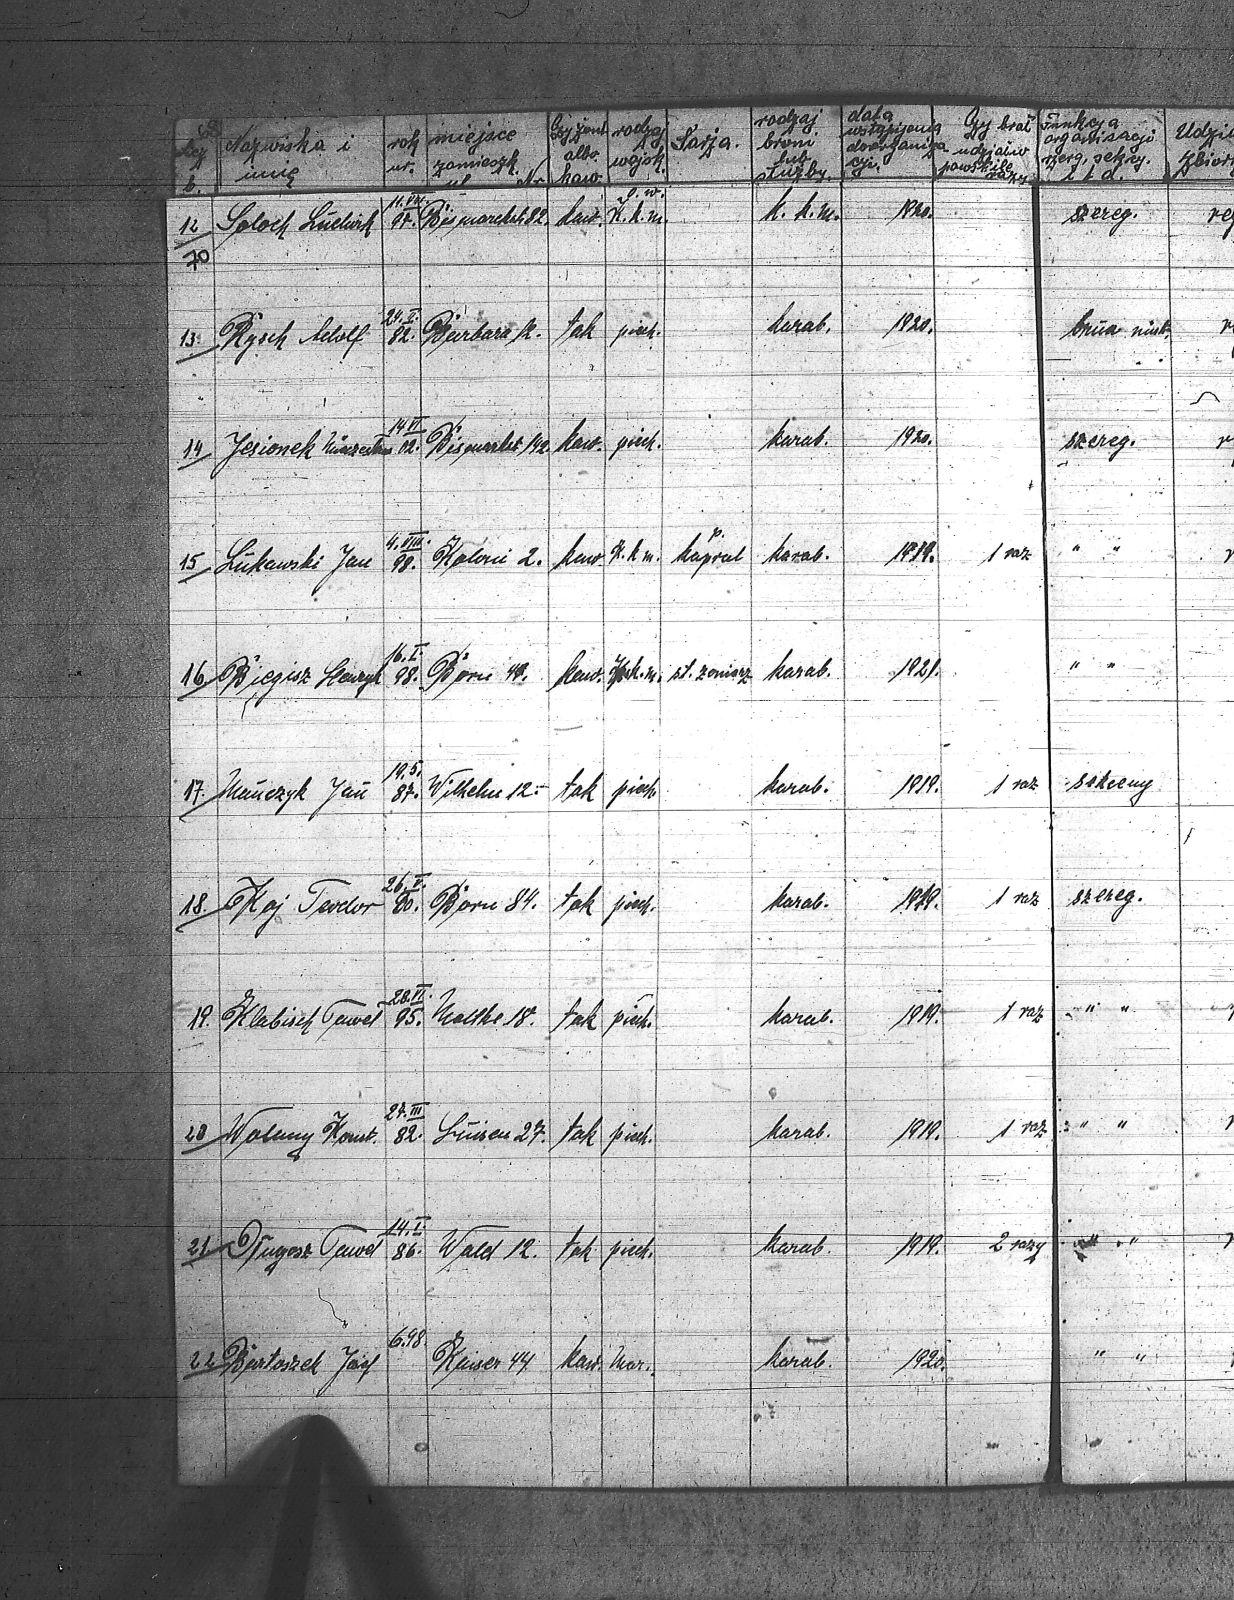 Licz b. Nazwiska i imię rok ur. miejsce zamieszk. ul. Nr. Czy żonat albo kaw. rodzaj wojsk. Sarja. rodzaj broni lub służby. data wstąpienia do organizacji. Czy brał udział w powstaniu Funkcja organisacji szereg. sekcy. i t. d. Udzia zbior
12 Soloch Ludwik 11.VIII. 97. Bismarckstr 82. kaw. k. k. m. k. k. m. 1920. szereg.
70
13. Rysch Adolf 24.V. 82. Barbara 12. tak piech. karab. 1920.
14 Jesionek 14.VI 02. Bismarkst 142. kaw. piech. karab. 1920. szereg.
15 Lukawski Jan 4.VIII. 98. Kolonie 2. kaw. k. k. m. kapral karab. 1919. 1 raz " "
16 Biegisz Henryk 16.I. 98. Born 48. kaw. karab. 1921. " "
17. Mańczyk Jan 19.5. 87. Wilhelm 12. tak piech karab. 1919. 1 raz sekcyny
18. Koj Teodor 26.V. 80. Born 84. tak piech. karab. 1919. 1 raz szereg.
19. Klabisch Paweł 28.VI. 95. Moltke 18. tak piech. karab. 1919. 1 raz " "
20 Wolany Konst. 27.III 82. Luisen 27. tak piech. karab. 1919. 1 raz " "
21 Długosz Paweł 14.I. 86. Wald 12. tak piech. karab. 1919. 2 razy " "
22 Bartoszek Józef 6.98. Kaiser 44 kaw. Mar. karab. 1920. " "